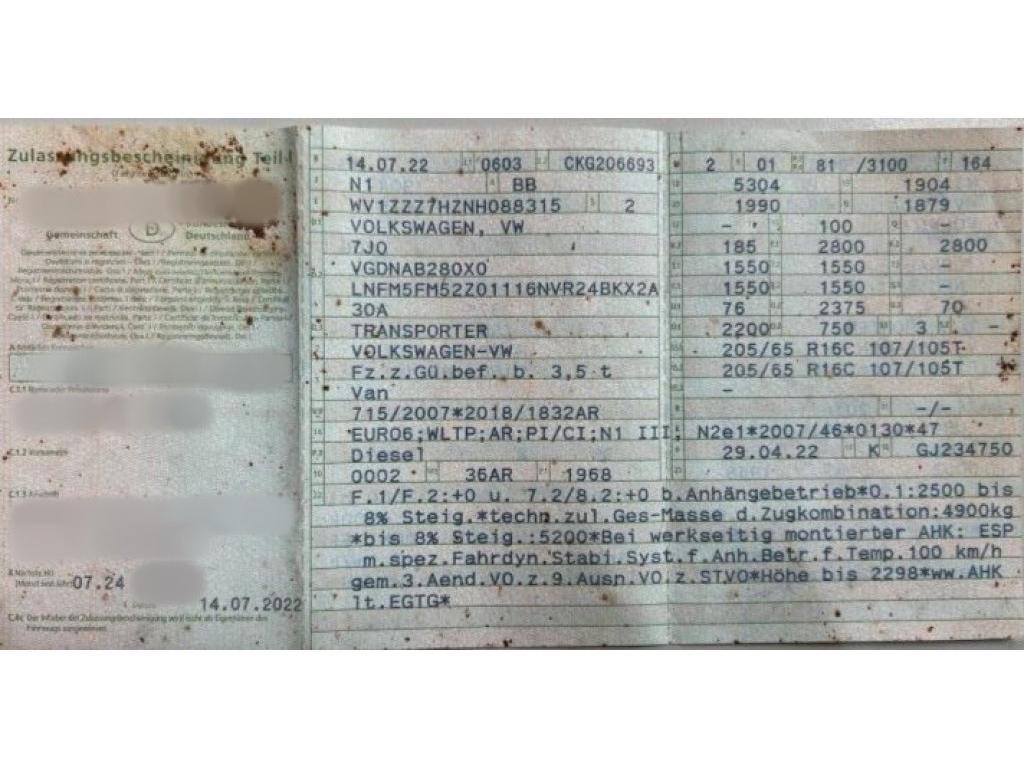 Zulassungsbescheinigung Teil I
Gemeinschaft D Deutschland
C.1.2 Vorname(n)
C.1.3 Anschrift
07.24
14.07.2022
C.4c Der Inhaber der Zulassungsbescheinigung wird nicht als Eigentümer des Fahrzeugs ausgewiesen.
14.07.22 0603 CKG206693
N1 BB
WV1ZZZ7HZNH088315 2
VOLKSWAGEN, VW
7J0
VGDNAB280X0
LNFM5FM52Z01116NVR24BKX2A
30A
TRANSPORTER
VOLKSWAGEN-VW
Fz.z.Gü.bef. b. 3,5 t
Van
715/2007*2018/1832AR
EURO6;WLTP;AR;PI/CI;N1 III;
Diesel
0002 36AR 1968
2 01 81 /3100 164
5304 1904
1990 1879
- 100 -
185 2800 2800
1550 1550 -
1550 1550 -
76 2375 70
2200 750 3 -
205/65 R16C 107/105T
205/65 R16C 107/105T
-
-/-
N2e1*2007/46*0130*47
29.04.22 K GJ234750
F.1/F.2:+0 u. 7.2/8.2:+0 b.Anhängebetrieb*O.1:2500 bis
8% Steig.*techn.zul.Ges-Masse d.Zugkombination:4900kg
*bis 8% Steig.:5200*Bei werkseitig montierter AHK: ESP
m.spez.Fahrdyn.Stabi.Syst.f.Anh.Betr.f.Temp.100 km/h
gem.3.Aend.VO.z.9.Ausn.VO.z.STVO*Höhe bis 2298*ww.AHK
lt.EGTG*